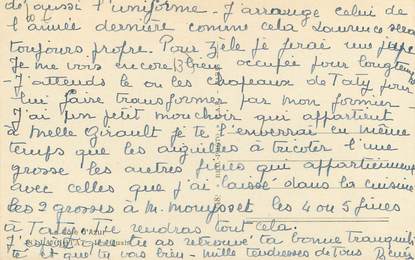 aussi l'uniforme - J'arrange celui de
l'année dernière comme cela Laurence sera
toujours propre. Pour Zele je ferai une jupe
Je me vois encore bien occupée pour longtemps
- J'attends le ou les chapeaux de Taty pour
lui faire transformer par mon formier -
- J'ai un petit mouchoir qui appartient
à Melle Girault je te l'enverrai en même
temps que les aiguilles à tricoter l'une
grosse les autres fines qui appartiennent
avec celles que j'ai laissé dans la cuisine
les 2 grosses à M. Mouysset les 4 ou 5 fines
à Taty. Tu rendras tout cela.
J'espère que tu as retrouvé ta bonne tranquilli
té et que tu vas bien - mille tendresses de tous